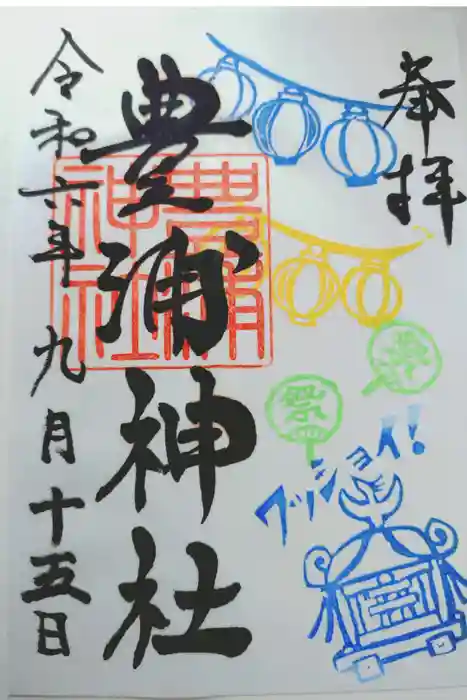 奉拝
豊浦神社
令和六年九月十五日
豊浦
神社
祭
ワッショイ!